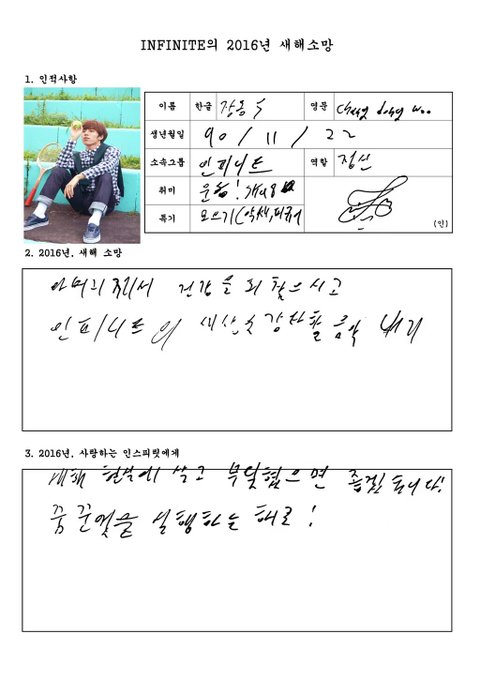 INFINITE의 2016년 새해소망
1. 인적사항
이름 한글 장동우 영문 Chang dong woo
생년월일 90 / 11 / 22
소속그룹 인피니트 역할 정신
취미 운동!
특기 모으기(악세,피규어
(인)
2. 2016년, 새해 소망
아버지께서 건강을 되찾으시고
인피니트의 음악 내기
3. 2016년, 사랑하는 인스피릿에게
새해 살고 으면 즐겁됩니다!
꿈꾼 것을 실행하는 해로!